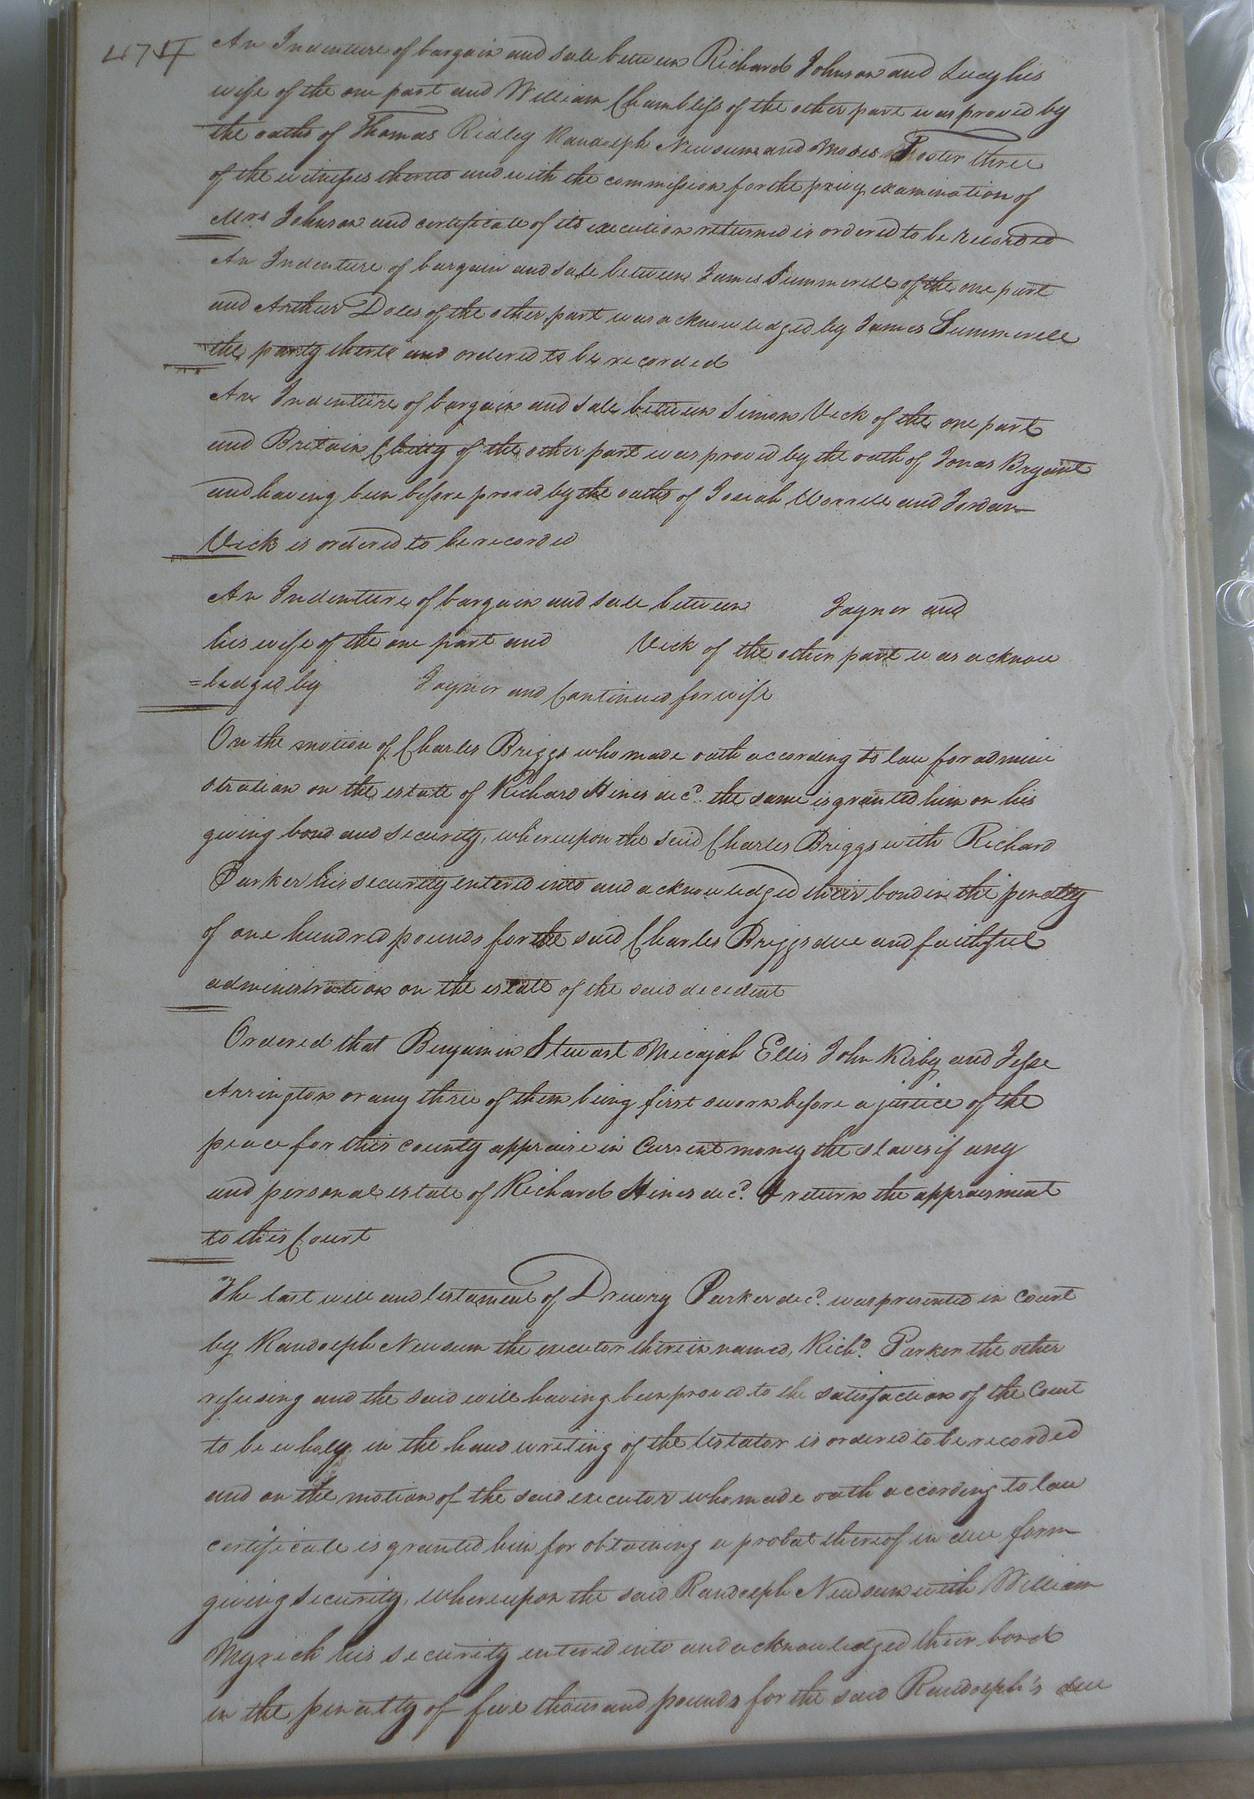 An Indenture of bargain and sale between Richard Johnson and Lucy his
wife of the one part and William Chambliss of the other part was proved by
the oaths of Thomas Ridley Randolph Newsum and Moses Foster three
of the witnesses thereto and with the commission for the privy examination of
Mrs Johnson and certificate of its execution returned is ordered to be recorded
An Indenture of bargain and sale between James Summerell of the one part
and Arthur Doles of the other part was acknowledged by James Summerell
the party thereto and ordered to be recorded
An Indenture of bargain and sale between Simon Vick of the one part
and Britain of the other part was proved by the oath of Jonas Bryant
and having been before proved by the oaths of Josiah Worrell and Jordan
Vick is ordered to be recorded
An Indenture of bargain and sale between Joyner and
his wife of the one part and Vick of the other part was acknow
=ledged by Joyner and Continued for wife
On the motion of Charles Briggs who made oath according to law for admini
stration on the estate of Richard Hines decd. the same is granted him on his
giving bond and security, whereupon the said Charles Briggs with Richard
Parker his security entered into and acknowledged their bond in the penalty
of one hundred pounds for the said Charles Briggs due and faithful
administration on the estate of the said decedent
Ordered that Benjamin Stewart Micajah Ellis John Kirby and Jesse
Arrington or any three of them being first sworn before a justice of the
peace for this county appraise in current money the slaves if any
and personal estate of Richard Hines decd. & return the appraisment
to this Court
The last will and testament of Drewry Parker decd. was presented in court
by Randolph Newsum the executor therein named, Richd. Parker the other
refusing and the said will having been proved to the satisfaction of the Court
to be wholy in the hand writing of the testator is ordered to be recorded
and on the motion of the said executor who made oath according to law
certificate is granted him for obtaining a probat thereof in due form
giving security, whereupon the said Randolph Newsum with William
Myrick his security entered into and acknowledged their bond
in the penalty of five thousand pounds for the said Randolph's due